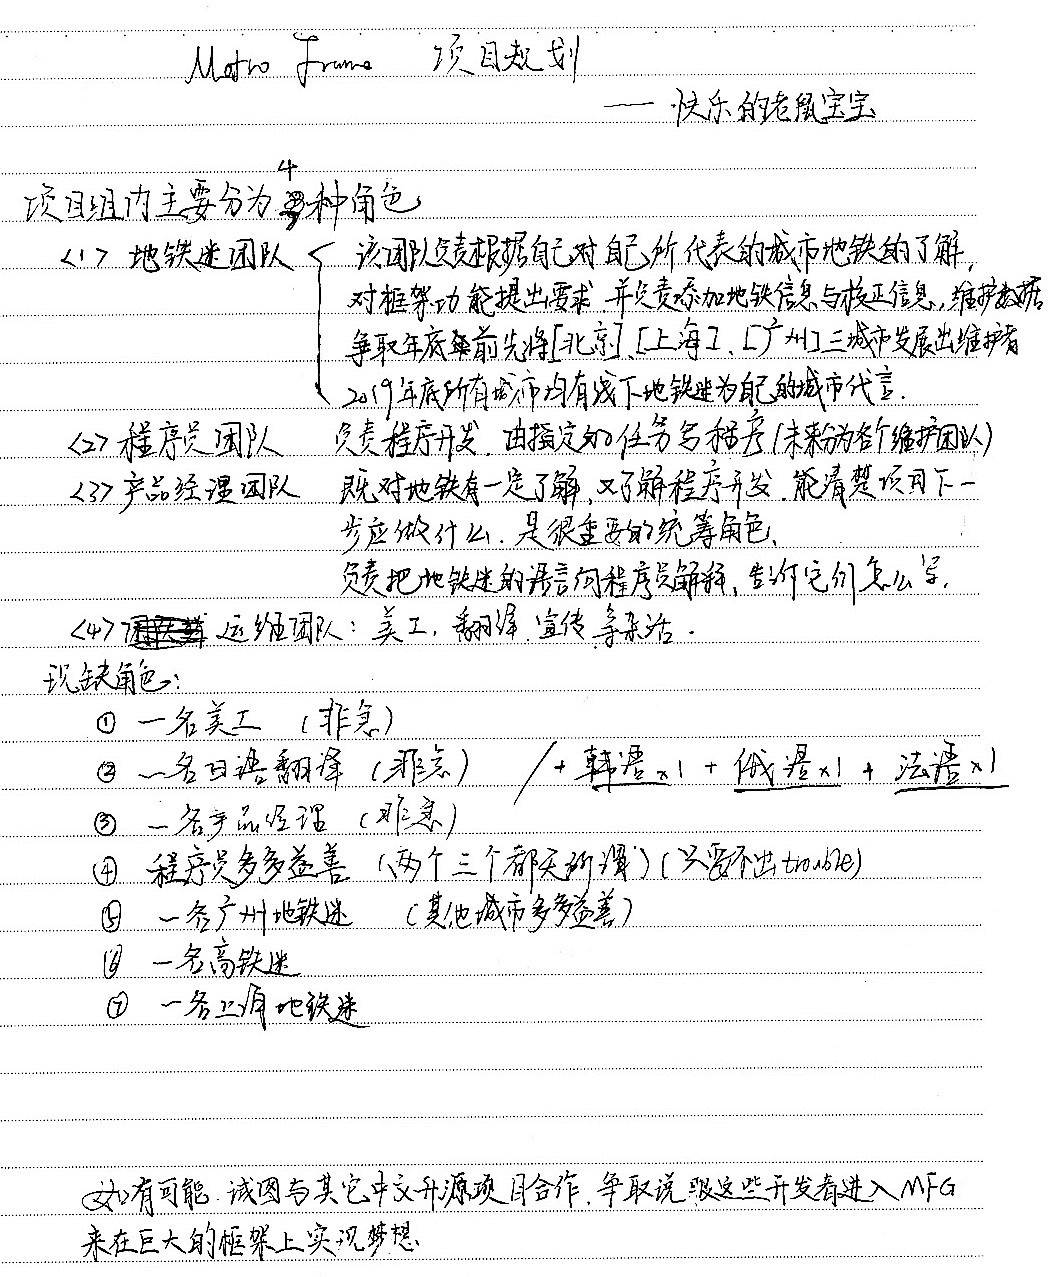 Metro Frame 项目规划
—— 快乐的老鼠宝宝
项目组内主要分为4种角色
<1> 地铁迷团队 该团队负责根据自己对自己所代表的城市地铁的了解,
对框架功能提出要求.并负责添加地铁信息与校正信息,维护数据
争取年底前先将[北京]、[上海]、[广州]三城市发展出维护者
2019年底所有城市均有线下地铁迷为自己的城市代言.
<2> 程序员团队 负责程序开发.由指定的任务写程序(未来分为各个维护团队)
<3> 产品经理团队 既对地铁有一定了解,又了解程序开发.能清楚项目下一
步应做什么.是很重要的统筹角色、
负责把地铁迷的语言向程序员解释,告诉它们怎么写.
<4> 运维团队: 美工,翻译.宣传.等杂活.
现缺角色:
① 一名美工 (非急)
② 一名日语翻译 (非急) / + 韩语×1 + 俄语×1 + 法语×1
③ 一名产品经理 (非急)
④ 程序员多多益善 (两个三个都无所谓)(只要不出trouble)
⑤ 一名广州地铁迷 (其他城市多多益善)
⑥ 一名高铁迷
⑦ 一名上海地铁迷
如有可能.试图与其它中文开源项目合作.争取说服这些开发者进入MFG
来在巨大的框架上实现梦想.